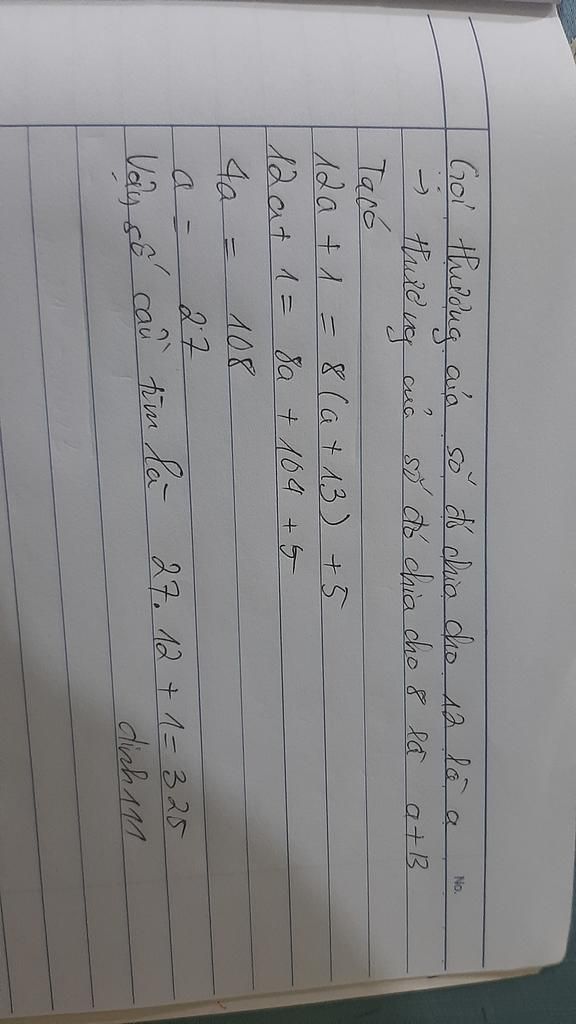 No.
Gọi thương của số đó chia cho 12 là a
→ thương của số đó chia cho 8 là a+13
Ta có
12a + 1 = 8(a + 13) + 5
12a + 1 = 8a + 104 + 5
4a = 108
a = 27
Vậy số cần tìm là 27.12 + 1 = 325
dinh111